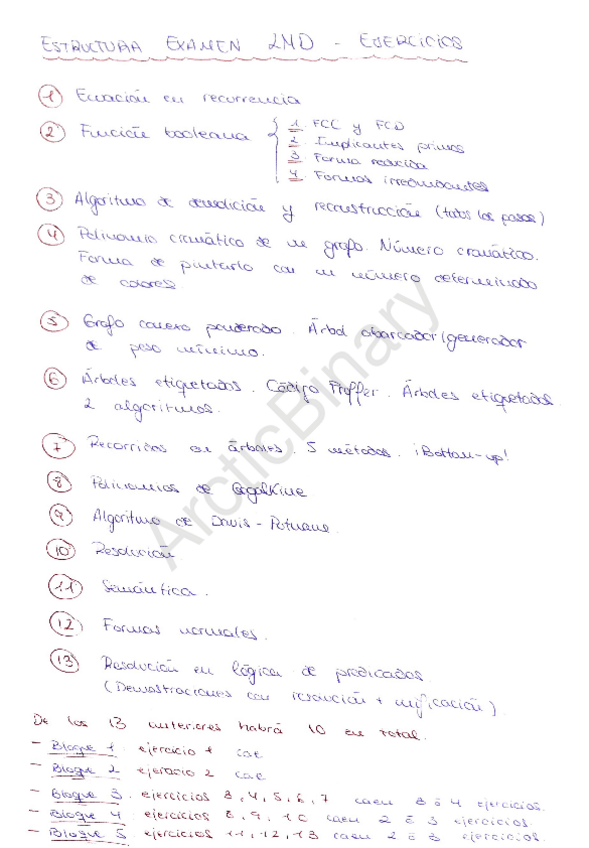 ESTRUCTURA EXAMEN LMD - EJERCICIOS
1 Ecuación en recurrencia
2 Función booleana
1. FCC y FCD
2. Implicantes primos
3. Forma reducida
4. Formas irredundantes
3 Algoritmo de demolición y reconstrucción (todos los pasos)
4 Polinomio cromático de un grafo. Número cromático.
Forma de pintarlo con un número determinado
de colores.
5 Grafo conexo ponderado. Árbol abarcador/generador
de peso mínimo.
6 Árboles etiquetados. Código Prüffer. Árboles etiquetados
2 algoritmos.
7 Recorridos en árboles. 5 métodos. ¡Bottom-up!
8 Polinomios de Gegalkine
9 Algoritmo de Davis - Putnam
10 Resolución
11 Semántica.
12 Formas normales.
13 Resolución en lógica de predicados
(Demostraciones con resolución + unificación).
De los 13 anteriores habrá 10 en total.
- Bloque 1 ejercicio 1 cae
- Bloque 2 ejercicio 2 cae
- Bloque 3. ejercicios 3, 4, 5, 6, 7 caen 3 ó 4 ejercicios.
- Bloque 4. ejercicios 8, 9, 10 caen 2 ó 3 ejercicios.
- Bloque 5 ejercicios 11, 12, 13 caen 2 ó 3 ejercicios.
ArcticBinary